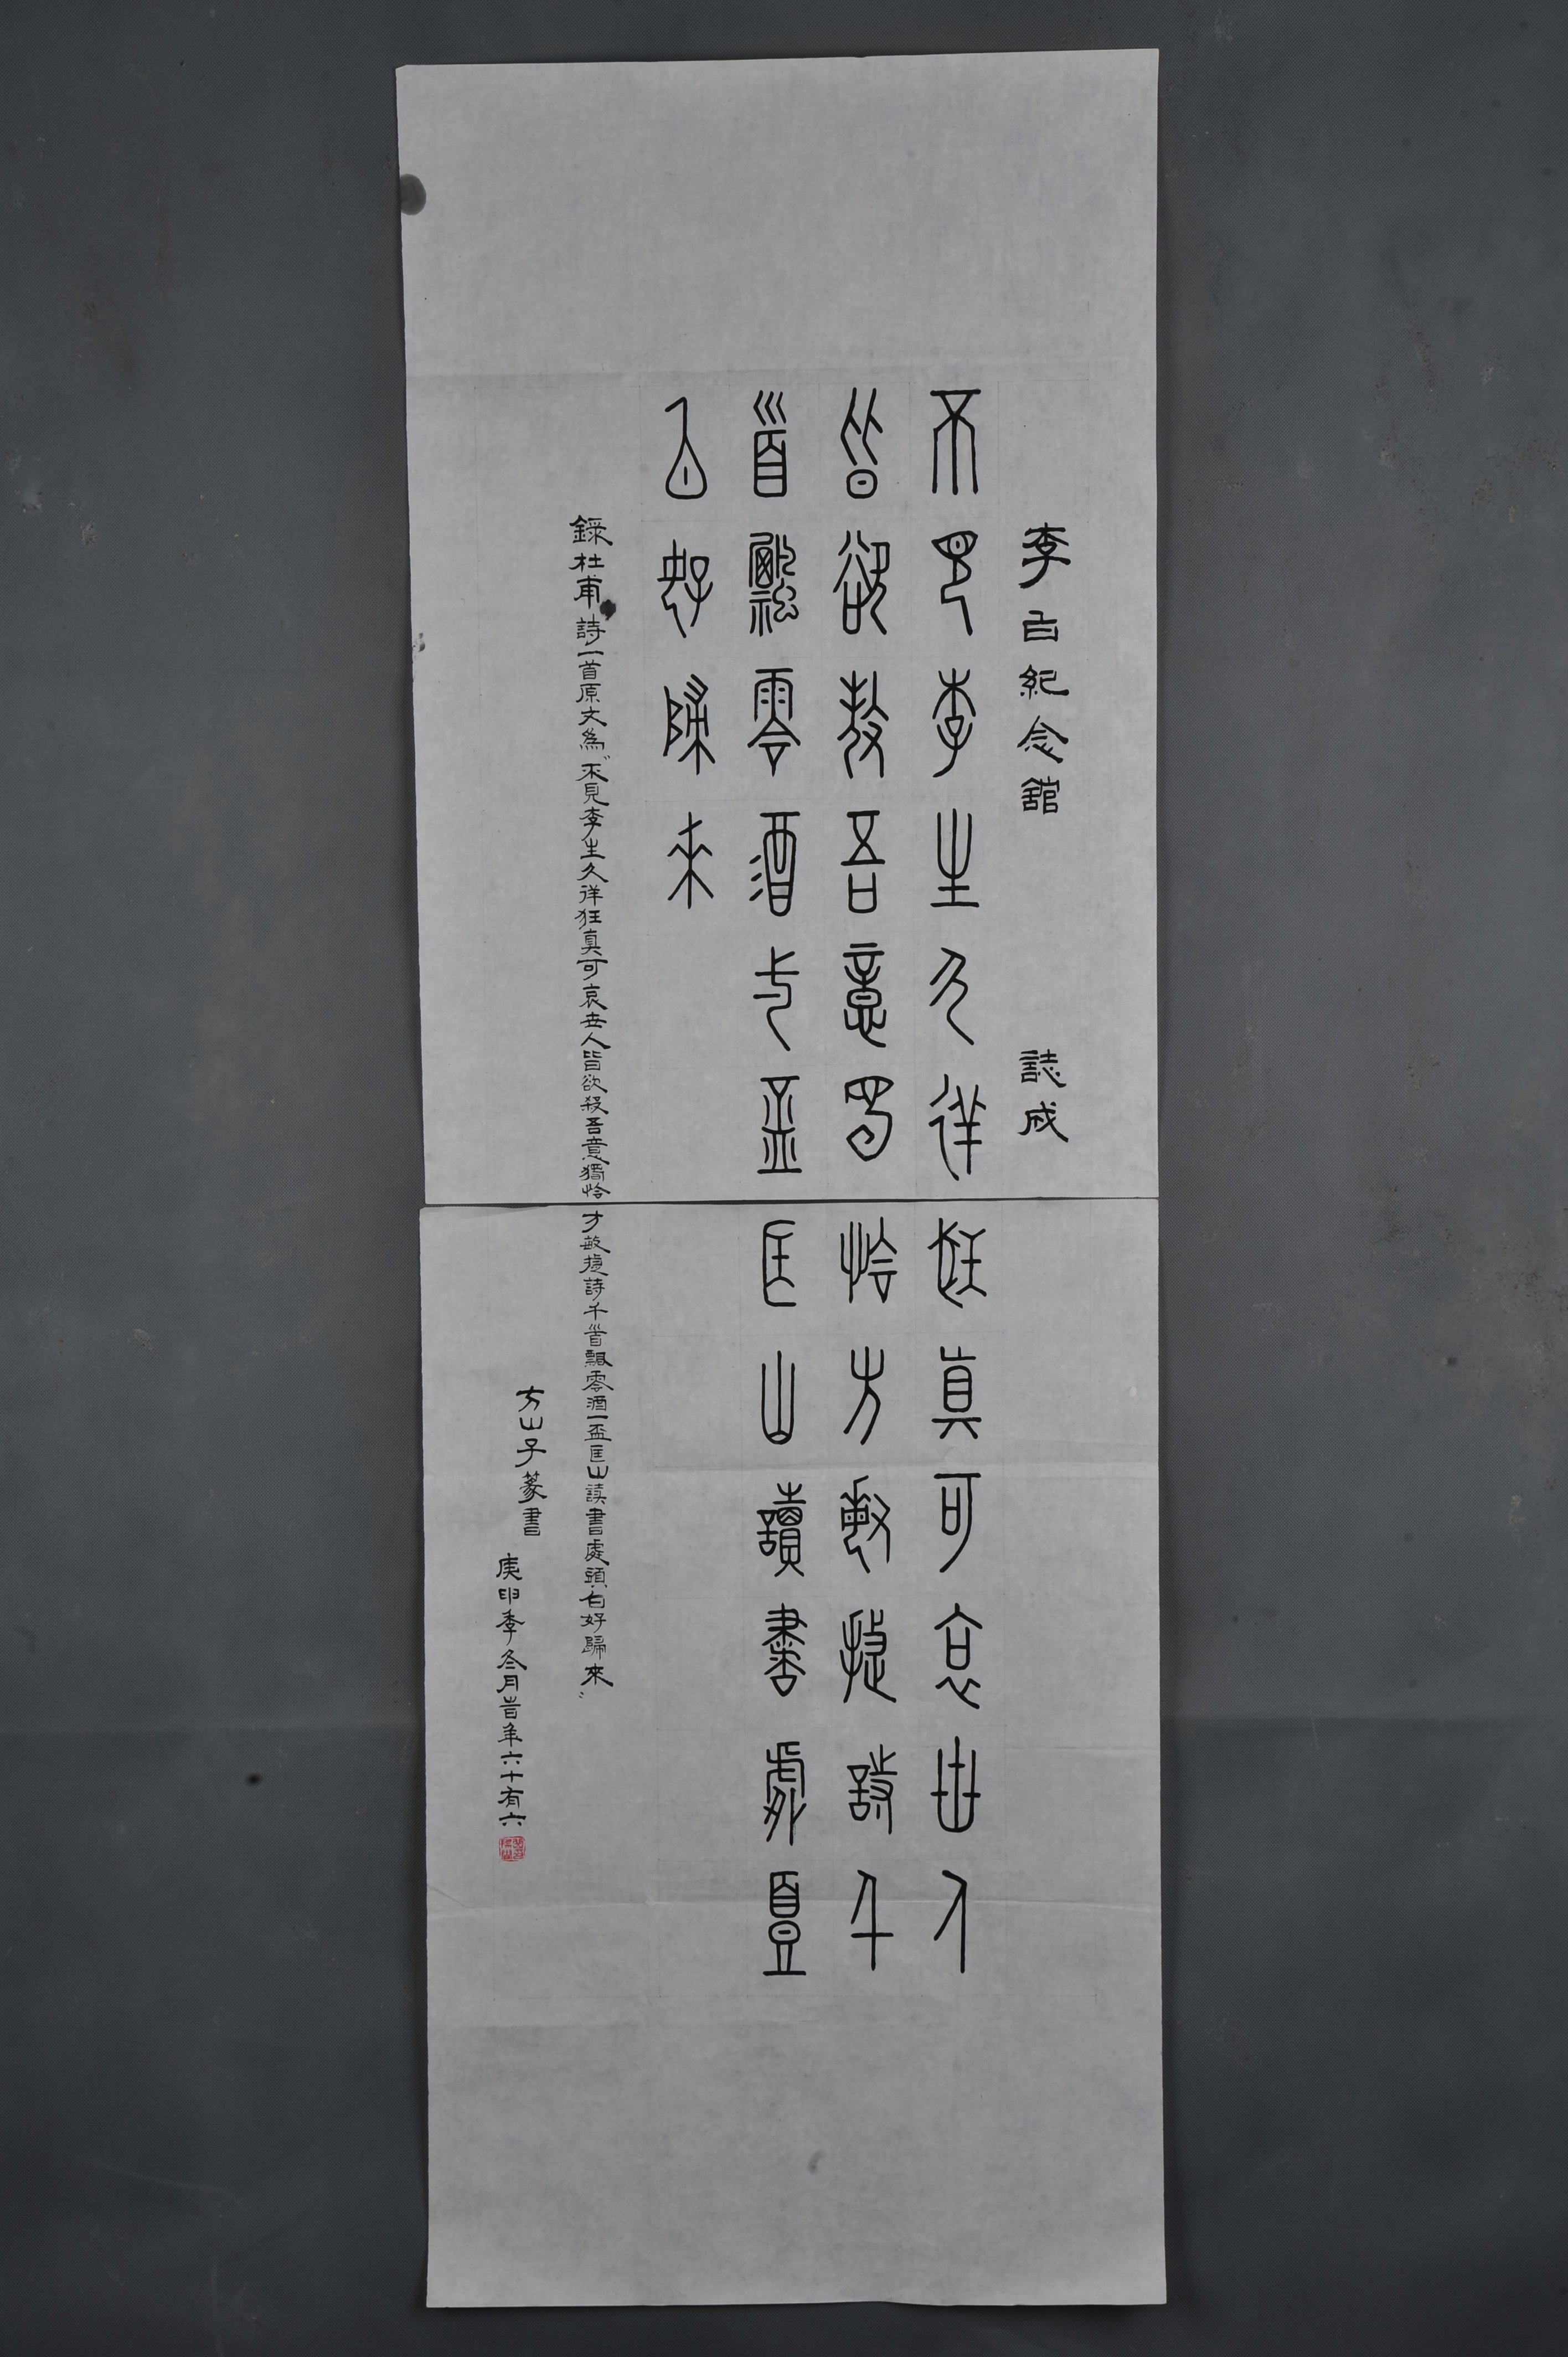 李白紀念舘 誌成
不見李生久徉狂真可哀世人
皆欲殺吾意獨怜才敏捷詩千
首飄零酒一盃匡山讀書處頭
白好歸來
錄杜甫詩一首原文為“不見李生久徉狂真可哀世人皆欲殺吾意獨怜才敏捷詩千首飄零酒一盃匡山讀書處頭白好歸來”
方山子篆書
庚申季冬月昔年六十有六